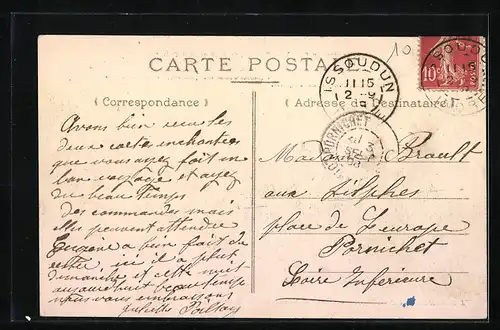 CARTE POSTALE
( Correspondance )
( Adresse du Destinataire )
ISSOUDUN
11 15
2 - 9
ISSOUDUN
11 15
10c
PORNICHET
3
Avons bien reçu les
deux cartes enchantées
que vous ayez fait un
bon voyage et ayez
du beau Temps
des commandes mais
elles peuvent attendre
a bien fait de
rester, ici il a plut
dimanche et cette nuit
aujourd'hui beau temps
nous vous embrassons
Juliette
Madame Brault
aux Zilphes
place de l'europe
Pornichet
Loire Inférieure